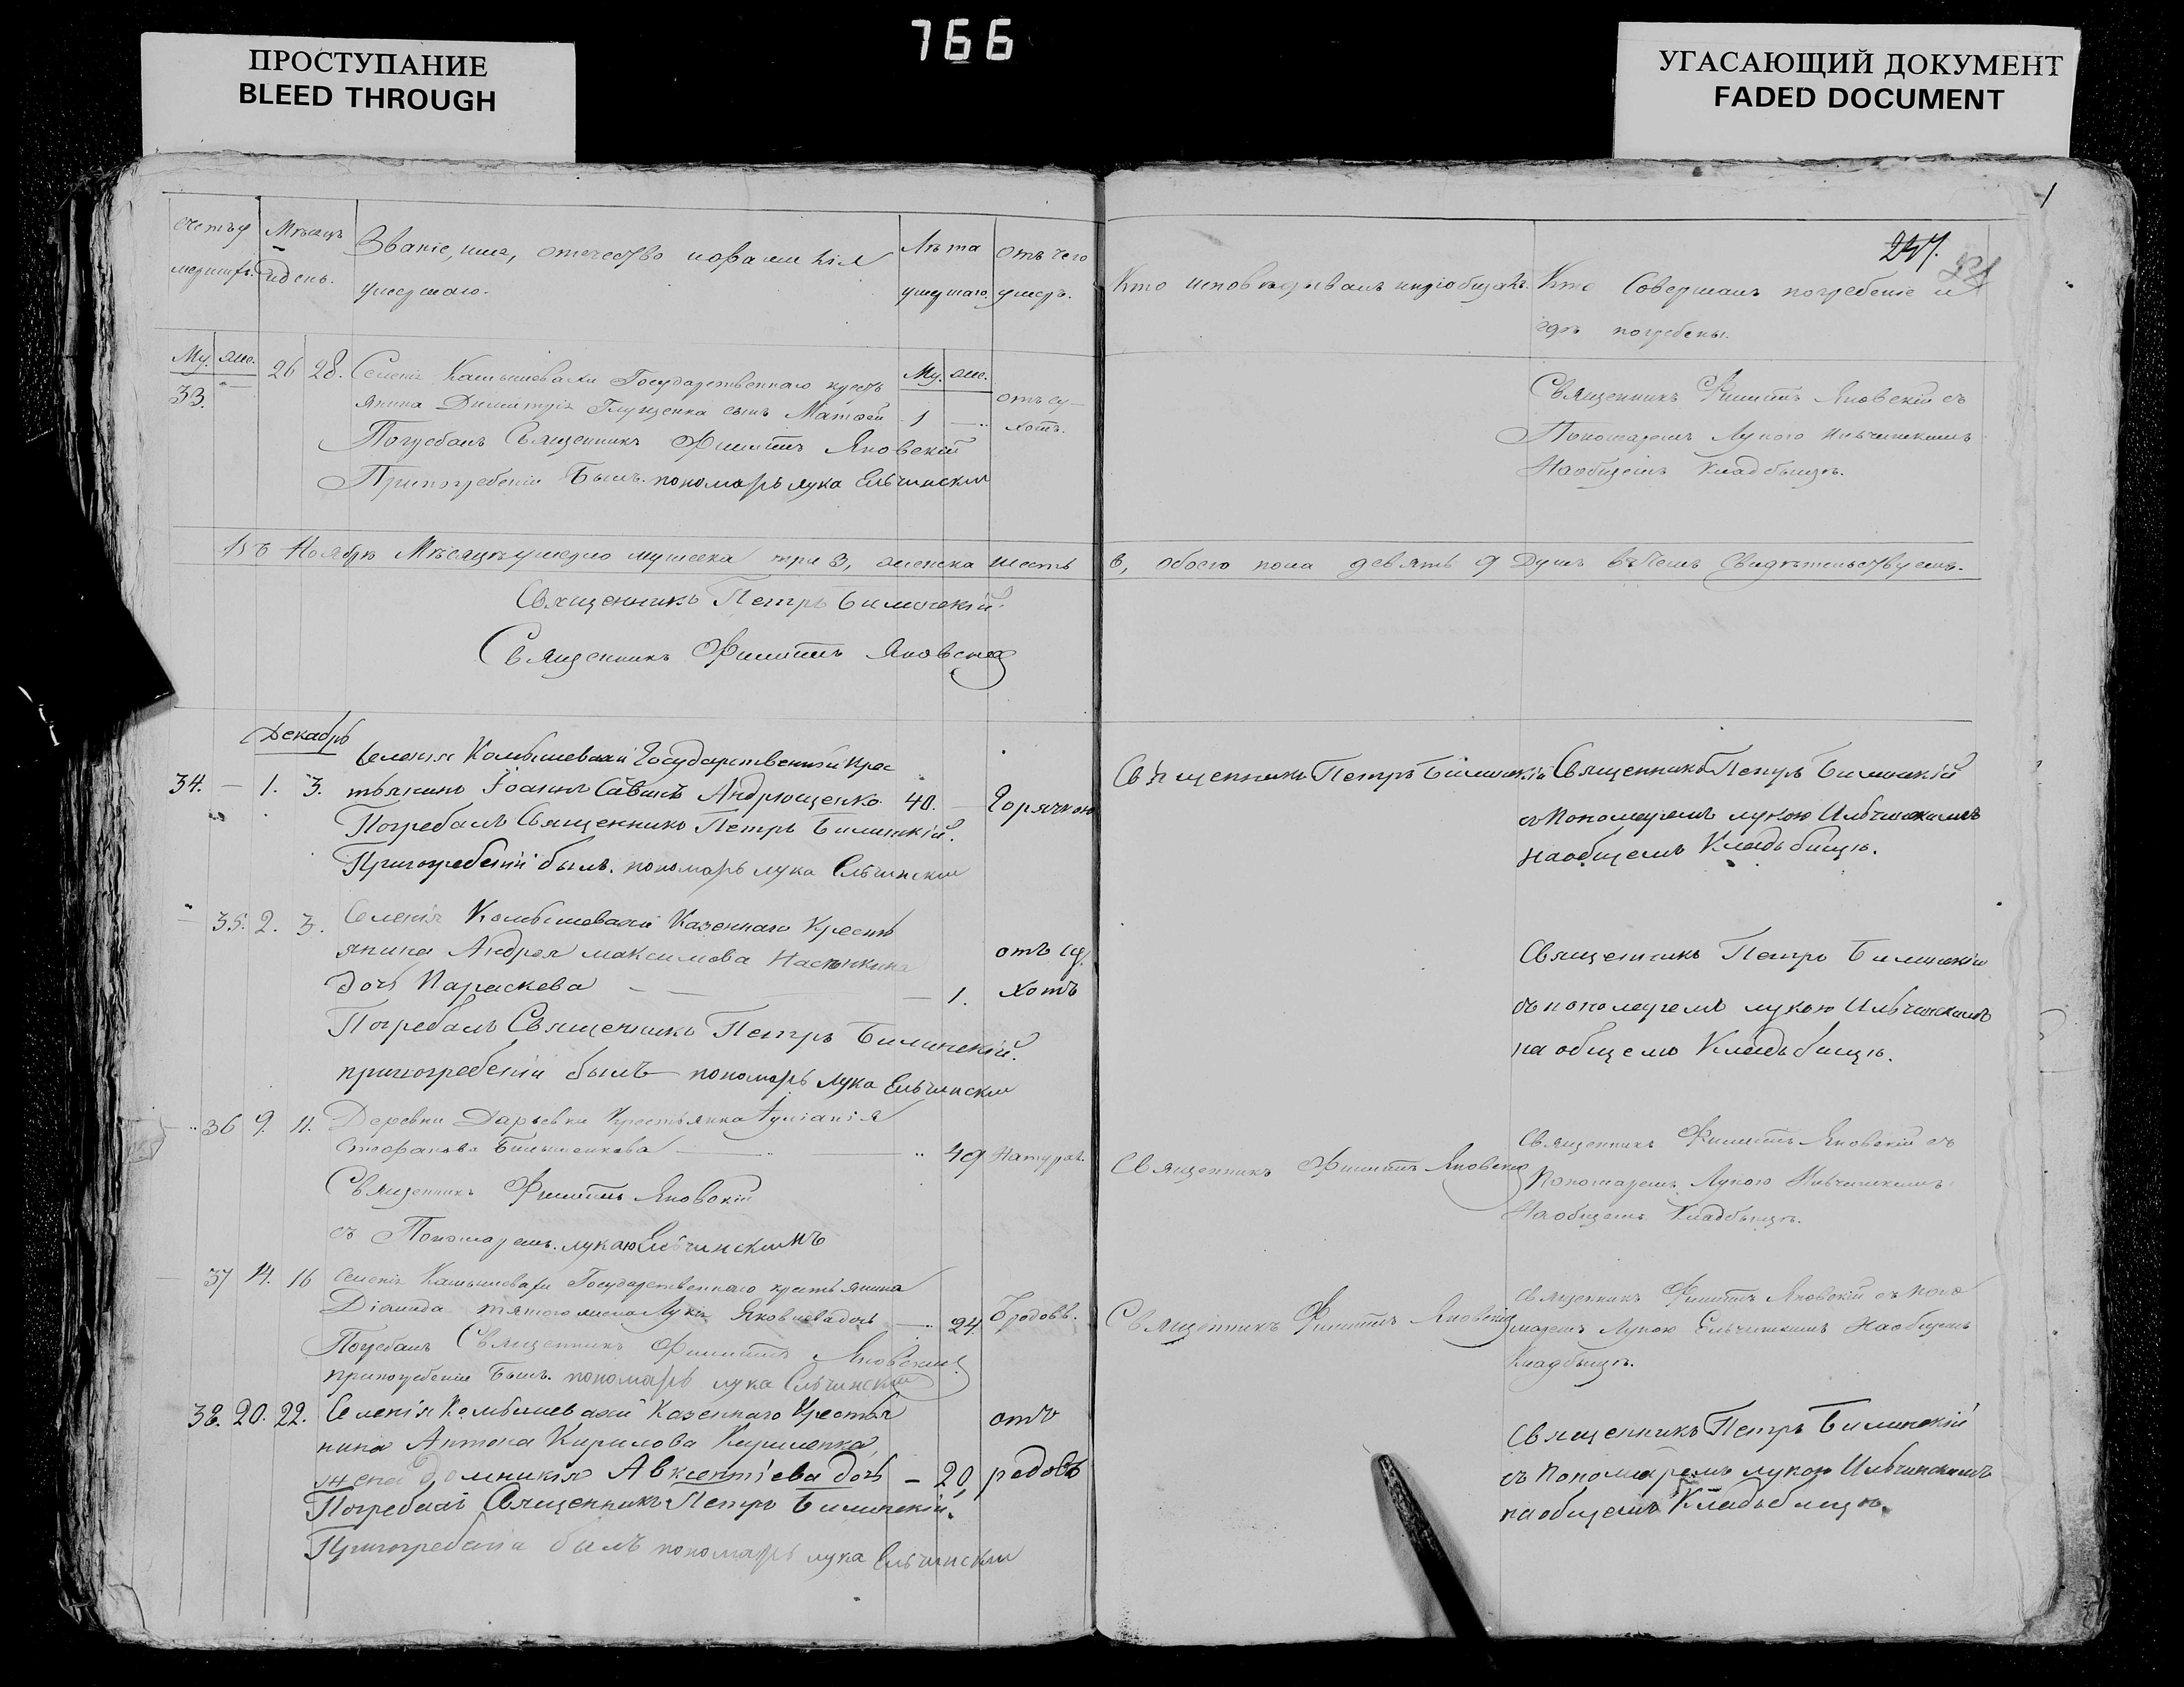 766
ПРОСТУПАНИЕ
BLEED THROUGH
УГАСАЮЩИЙ ДОКУМЕНТ
FADED DOCUMENT
1
247.
Мѣсяцъ
и день.
Званіе, имя, отечество и фамилія
умершаго.
Лѣта
умершаго.
Отъ чего
умеръ.
Кто исповѣдывалъ и пріобщалъ.
Кто Совершалъ погребеніе и
гдѣ погребены.
Му. же.
33. 26 28. Селенія Камышевахи Государственнаго кресть
Му. же.
янина Димитрія Глущенка сынъ Матвей 1 отъ су-
хотъ.
Погребалъ Священникъ Филиппъ Яновскій
Припогребеніи Былъ. пономарь лука Ельчински
Священникъ Филиппъ Яновскій съ
Пономаремъ Лукою Ильчинскимъ
На общемъ Кладбищѣ.
Въ Ноябрѣ Мѣсяцѣ умерло мужеска три 3, женска шесть
6, обоего пола девять 9 Душъ въ чемъ Свидѣтельствуемъ.
Священникъ Петръ Билинскій.
Священникъ Филиппъ Яновскій
Декабрь
Селенія Камбышевахи Государственный крес
34. — 1. 3. тьянинъ Іоаннъ Савинъ Андрющенко 40. — Горячкою
Погребалъ Священникъ Петръ Билинскій.
Припогребеніи былъ. пономарь лука Ельчински
Священникъ Петръ Билинскій
Священникъ Петръ Билинскій
съ Пономаремъ лукою Ильчинскимъ
на общемъ Кладьбищѣ.
— 35. 2. 3. Селенія Комбышевахи Казеннаго Кресть
янина Андрея максимова отъ су
дочь Параскева — 1. хотъ
Погребалъ Священникъ Петръ Билинскій.
припогребеніи былъ пономарь лука Ельчински
Священникъ Петръ Билинскій
съ пономаремъ лукою Ильчинскимъ
на общемъ Кладьбищѣ.
36 9. 11. Деревни Дарьевки Крестьянка Іуліанія
Стефанова — 49 Натурал.
Священникъ Филиппъ Яновскій
съ Пономаремъ. лукаю Ельчинскимъ
Священникъ Филиппъ Яновскій
Священникъ Филиппъ Яновскій съ
Пономаремъ Лукою Ильчинскимъ
На общемъ Кладбищѣ.
37 14. 16 Селенія Камышевахи Государственнаго крестьянина
Діомида Яковлева дочь — 24
Погребалъ Священникъ Филиппъ Яновскій
припогребеніи Былъ. пономарь лука Ельчински
Священникъ Филиппъ Яновскій
Священникъ Филиппъ Яновскій съ поно
маремъ Лукою Ельчинскимъ На общемъ
Кладбищѣ.
38. 20. 22. Селенія Комбышевахи Казеннаго Крестья отъ
нина Антона Кирилова Кириленка
жена Домникія Авксентіева дочь — 20 родовъ
Погребалъ Священникъ Петръ Билинскій.
Припогребеніи былъ пономарь лука Ельчински
Священникъ Петръ Билинскій
съ Пономаремъ лукою Ильчинскимъ
на общемъ Кладьбищѣ.